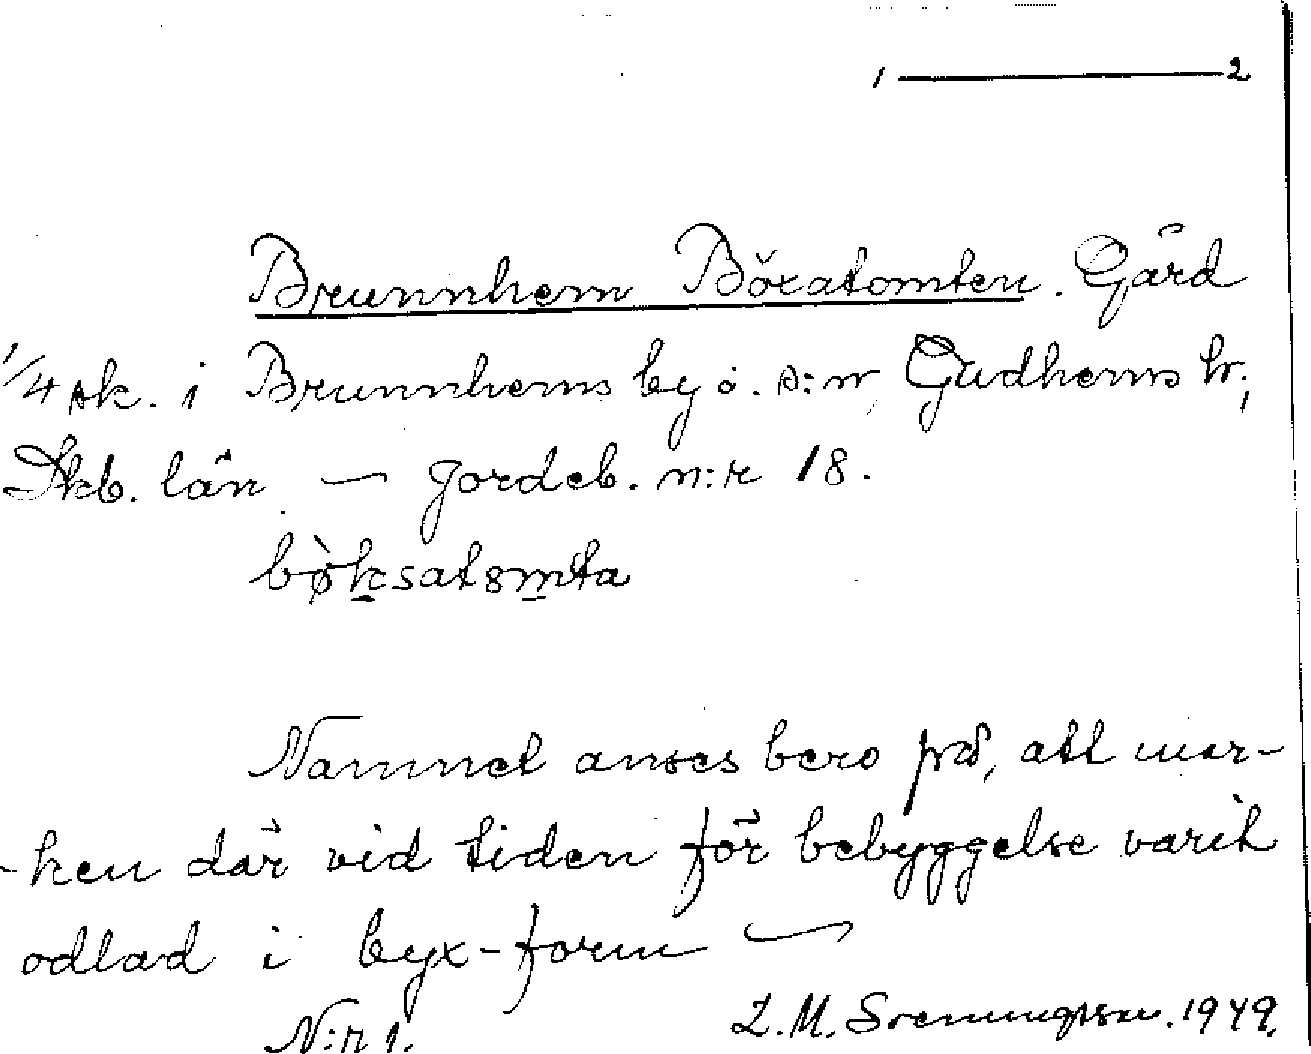 1 — 2
Brunnhem Böxatomten. Gård
1/4 sk. i Brunnhems by o. s:n, Gudhems hr,
Skb. län — Jordeb. n:r 18.
bø̀ksatɷmta
Namnet anses bero på, att mar-
-ken där vid tiden för bebyggelse varit
odlad i byx-form —
N:r 1. L. M. Svenungsson. 1949.